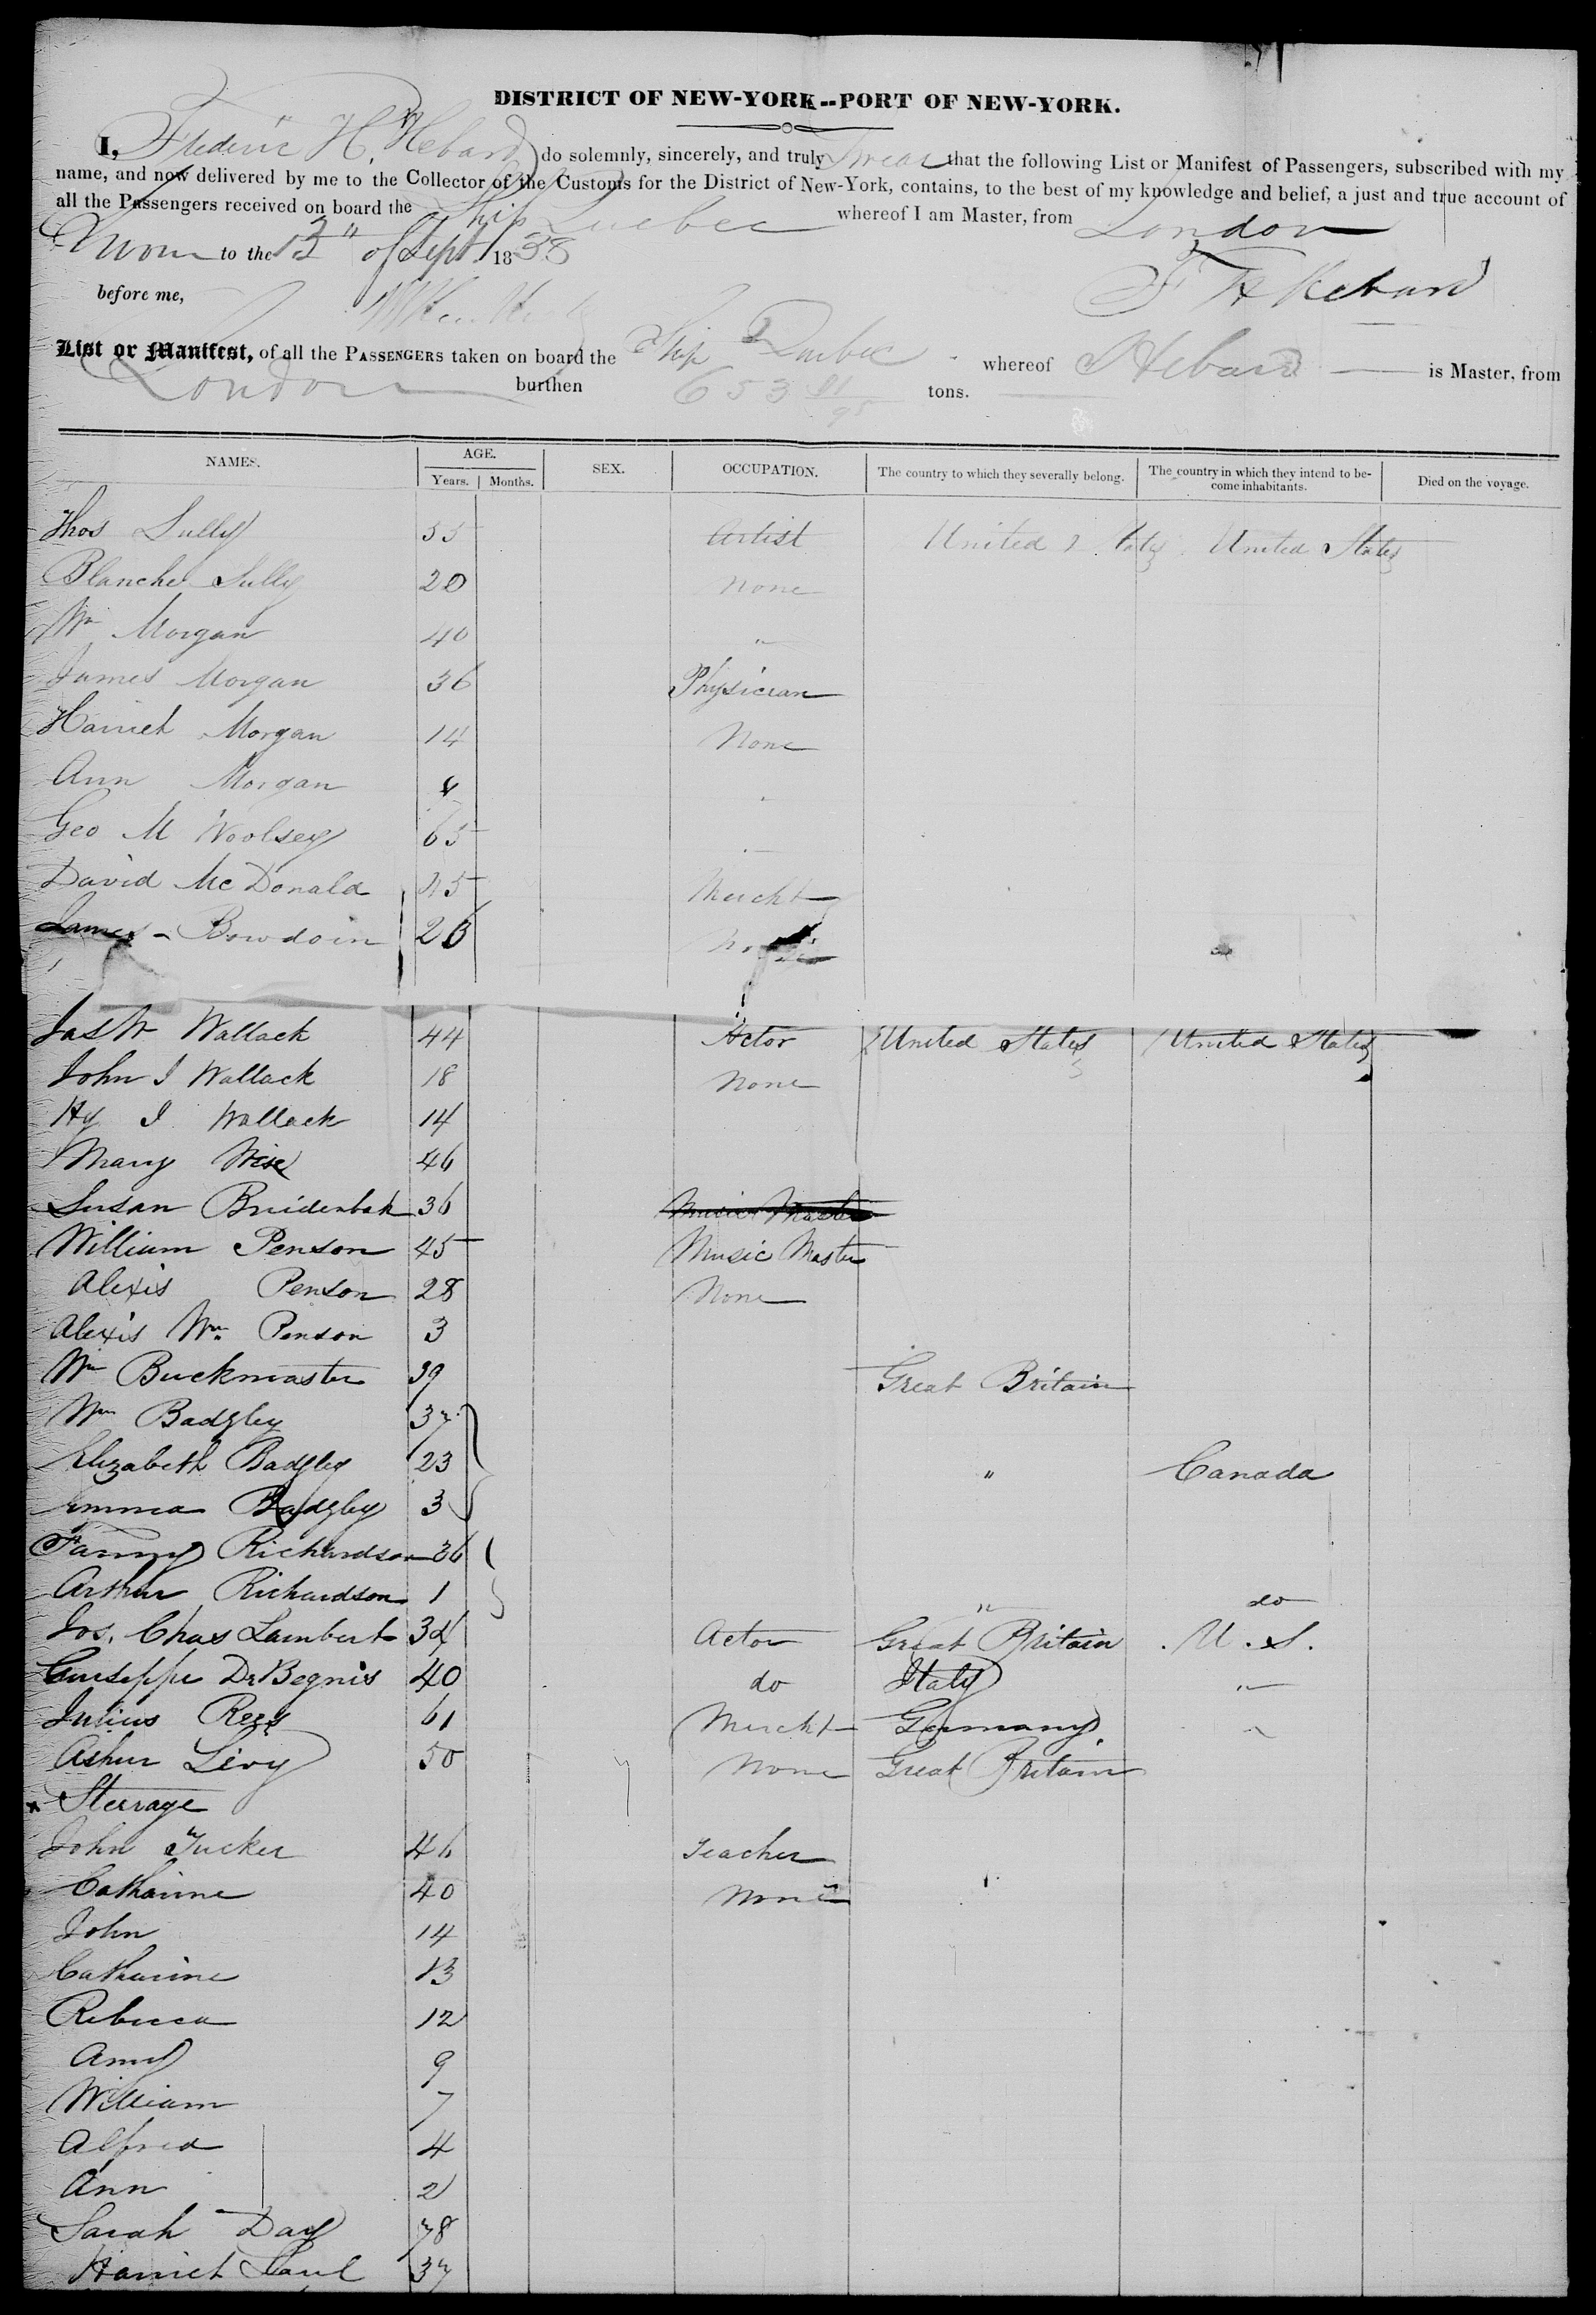 DISTRICT OF NEW-YORK--PORT OF NEW-YORK.
I, Frederic H. Hebard do solemnly, sincerely, and truly Swear that the following List or Manifest of Passengers, subscribed with my
name, and now delivered by me to the Collector of the Customs for the District of New-York, contains, to the best of my knowledge and belief, a just and true account of
all the Passengers received on board the Ship Quebec whereof I am Master, from London
Sworn to the 13" of Sept. 1838
F H Hebard
before me,
List or Manifest, of all the PASSENGERS taken on board the Ship Quebec whereof Hebard is Master, from
London burthen 653 81/95 tons.
NAMES. AGE. Years. Months. SEX. OCCUPATION. The country to which they severally belong. The country in which they intend to become inhabitants. Died on the voyage.
Thos Sully 55 Artist United States United States
Blanche Sully 20 None
Wm Morgan 40 "
James Morgan 36 Physician
Harriet Morgan 14 None
Ann Morgan
Geo M Woolsey 65
David McDonald 45 Mercht
James Bowdoin 26
Jas W Wallack 44 Actor United States United States
John J Wallack 18 None
Hy J Wallack 14
Mary Wise 46
Susan Breidenbak 36 Music Master
William Penson 45 Music Master
Alexis Penson 28 None
Alexis Wm. Penson 3
Wm Buckmaster 39 Great Britain
Wm Badgley 37
Elizabeth Badgley 23 " Canada
Emma Badgley 3
Fanny Richardson 36
Arthur Richardson 1 " do
Jos. Chas Lambert 34 Actor Great Britain U. S.
Guiseppe De Begnis 40 do Italy "
Julius Rees 61 Mercht Germany "
Asher Levy 50 None Great Britain
x Steerage
John Tucker 46 Teacher
Catharine 40 None
John 14
Catharine 13
Rebecca 12
Amy 9
William 7
Alfred 4
Ann 2
Sarah Day 78
Harriet Paul 37